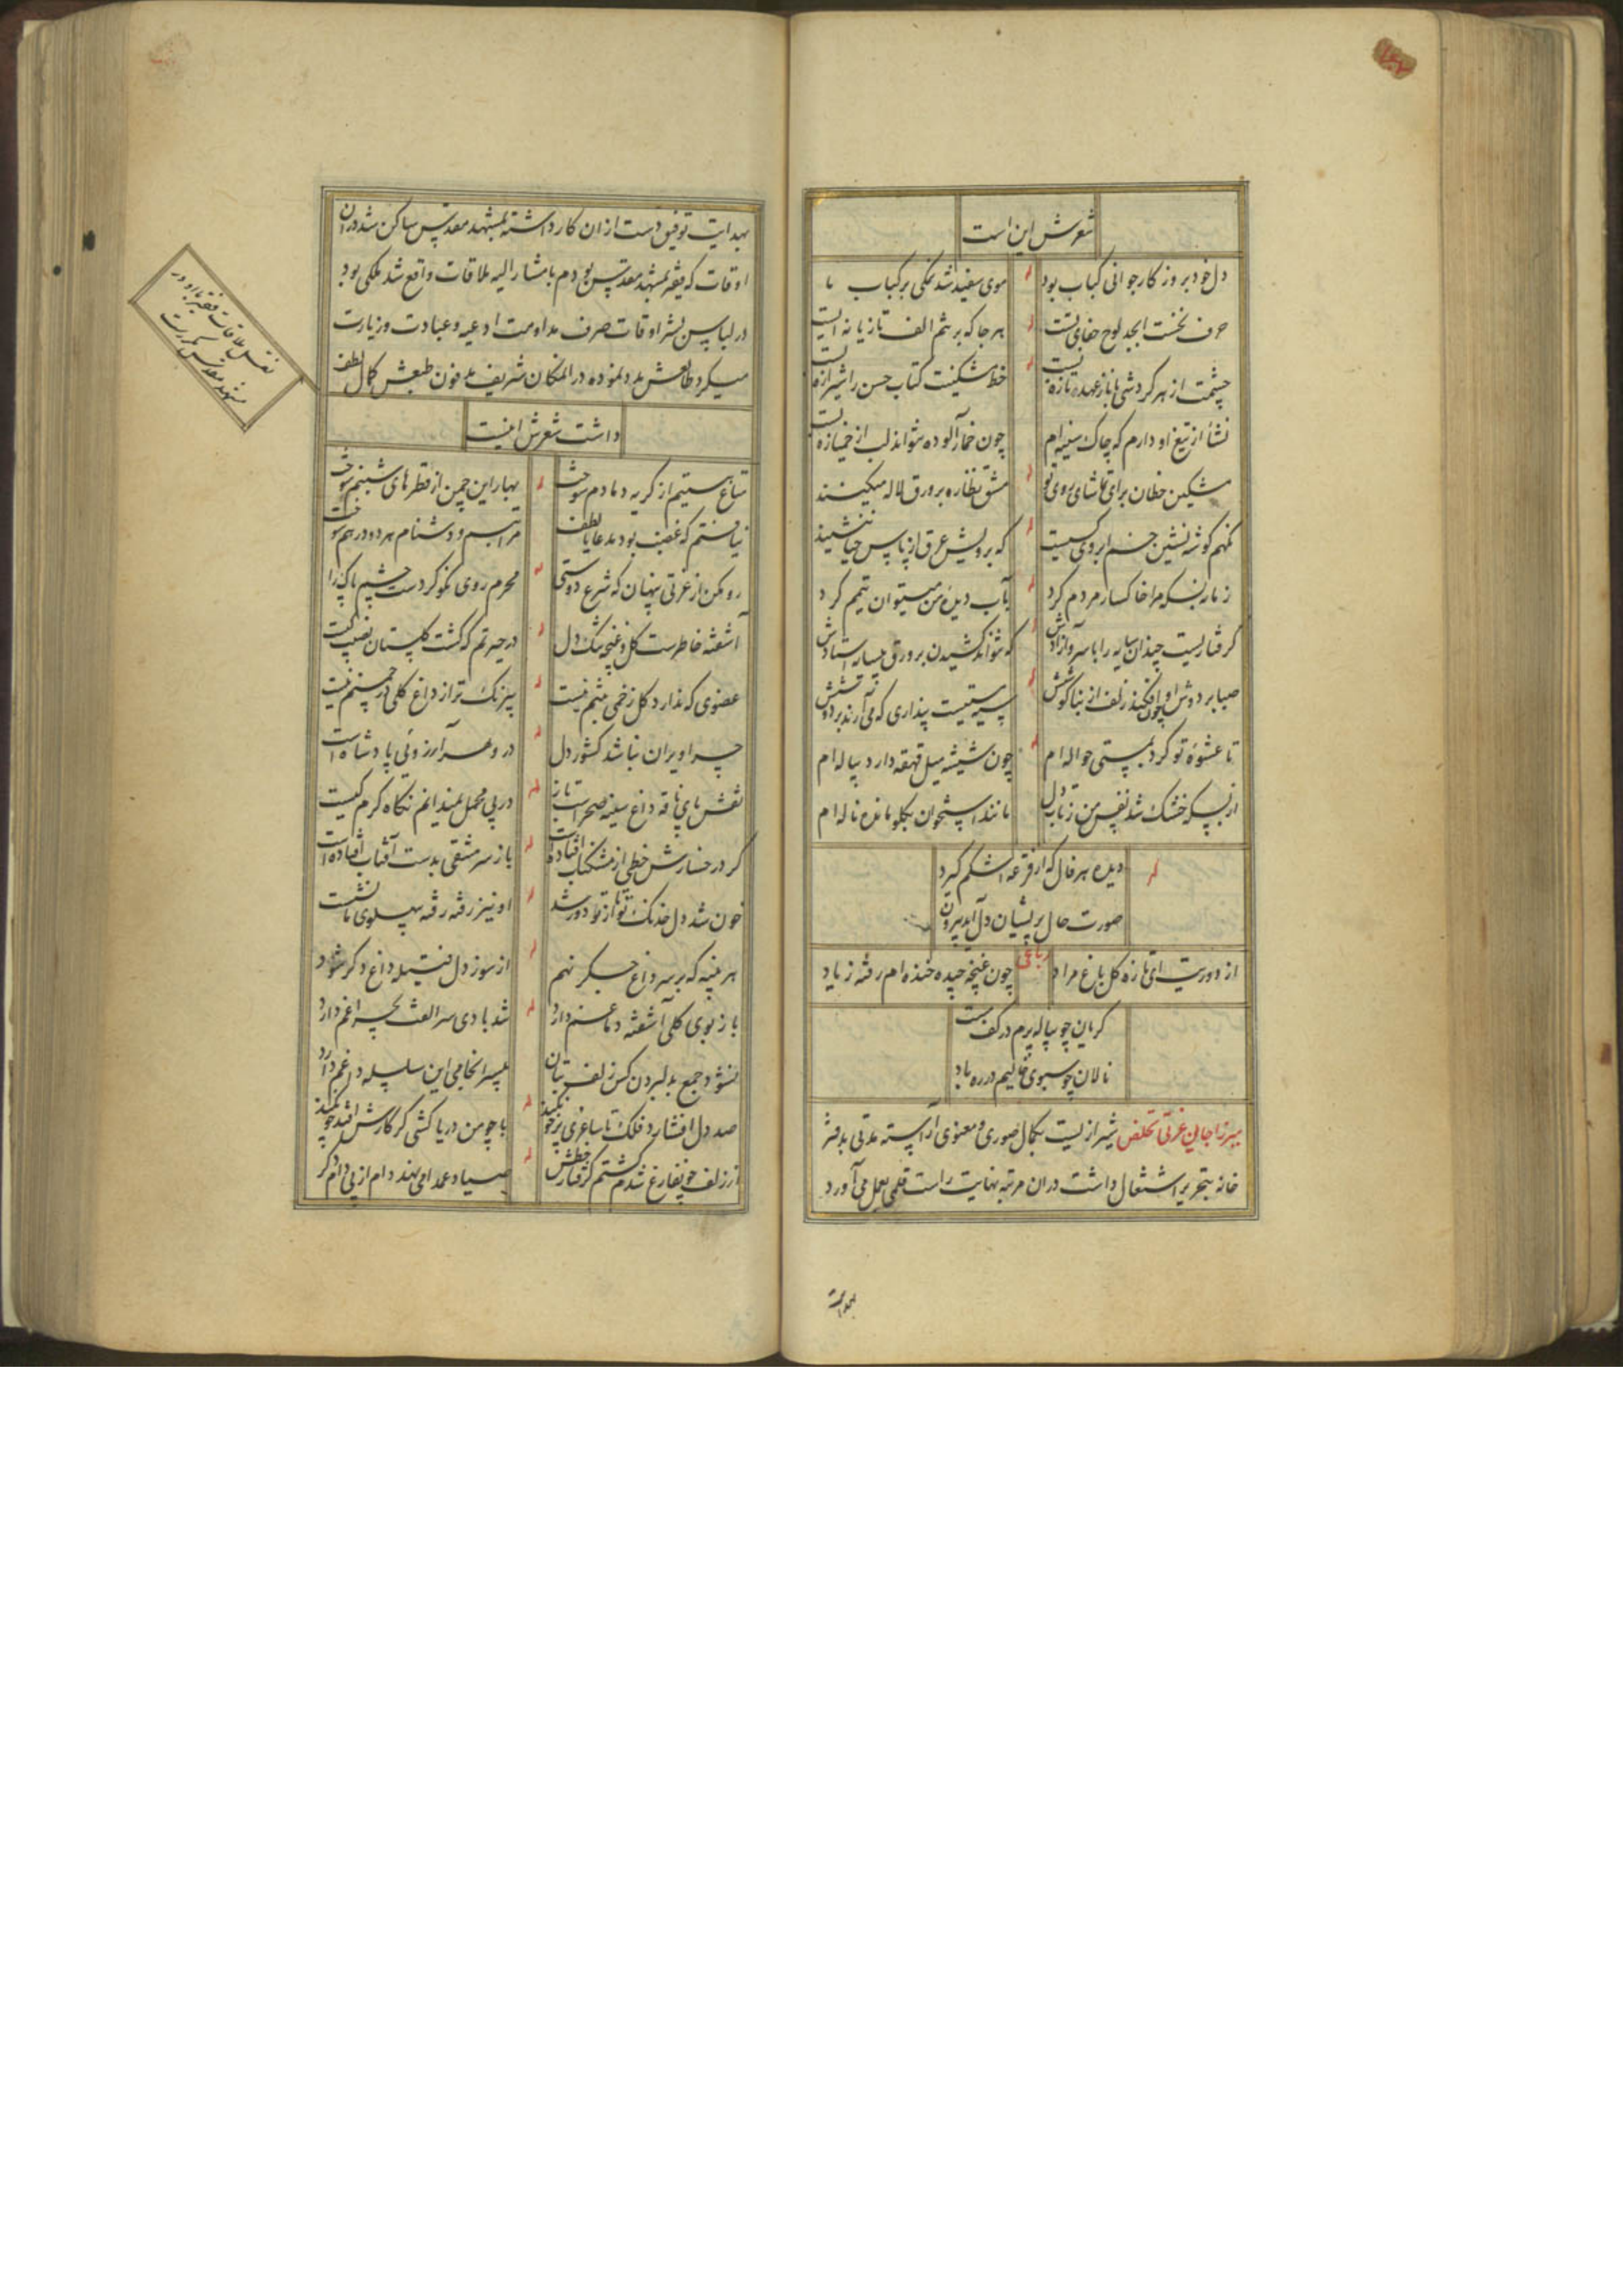 شعرش این است
دل خود بروزکار جوانی کباب بود موی سفید شد نمکی بر کباب ما
حرف نخست ابجد لوح جفای تست هرجا که بر تنم الف تازیانه ایست
چشمت از هر کردشی با ناز عهد تازه بست خط مشکینت کتاب حسن را شیرازه بست
نشأ از تیغ او دارم که چاک سینه ام چون خمارآلوده نتواند لب از خمیازه بست
مشکین خطان برای تماشای روی تو مشق نظاره بر ورق لاله میکنند
نمیدهم گوشه نشین خم ابروی کسیت که برویش عرق از پاس حیا ننشیند
ز ما زبسکه مرا خاکسار مردم کرد بآب دیدهٔ من میتوان تیمم کرد
گرفتاریست چندان سایه را با سرو آزادش که نتواند کشیدن بر ورق استادش
صبا بر دوش او چون افکند زلف از بناکوشش سیه مستیست پنداری که می آرند بر دوشش
تا عشوهٔ تو کرد بمستی حواله ام چون شیشه میل قهقهه دارد پیاله ام
از بسکه خشک شد نفس من ز تاب دل مانند استخوان بگلو مانده ناله ام
دیده هر فال که از قرعهٔ اشکم گیرد
صورت حال پریشان دل آید بیرون
رباعی
از دوریت ای تازه گل باغ مراد چون غنچه چیده خنده ام رفته ز یاد
گریان چو پیاله پرم در کف مست
نالان چو سبوی خالیم در ره باد
میرزا جانی عزتی تخلص شیرازیست بکمال صوری و معنوی آراسته مدتی بدفتر
خانه بتحریر اشتغال داشت دران مرتبه نهایت راست قلمی بعمل می آورد
بهدایت
بهدایت توفیق دست ازان کار داشته بمشهد مقدس ساکن شد دران
اوقات که فقیر بمشهد مقدس بودم با مشارالیه ملاقات واقع شد ملکی بود
در لباس بشر اوقات صرف مداومت ادعیه و عبادت و زیارت
میکرد طالعش مدد نموده در المکان شریف مدفون طبعش کمال لطف
داشت شعرش اینست
نقل ملاقات فقیر با او در
مشهد مقدس
متاع هستیم از گریه دمادم سوخت بهار این چمن از قطرهای شبنم سوخت
نیافتم که غضب بود مدعا یا لطف مرا تبسم و دشنام هر دو در هم سوخت
رو مکن از عزتی پنهان که شرع دوستی محرم روی نکو کردست چشم پاک را
آشفته خاطرست گل و غنچه تنگ دل در حیرتم که گشت گلستان نصیب کیست
عضوی که ندارد گل زخمی بتنم نیست بیرنگ تر از داغ گلی در چمنم نیست
چرا ویران نباشد کشور دل در و هر آرزوئی پادشاه است
نقش پای ناقه داغ سینه صحراست باز در پی محمل نمیدانم نگاه گرم کیست
گر در رخسارش خطی از مشکناب افتاده است باز سر مشقی بدست آفتاب افتاده است
خون شد دل خدنگ تو تا از تو دور شد او نیز رفته رفته بپهلوی ما نشست
هر پنبه که بر سر داغ جگر نهم از سوز دل فتیله داغ دگر شود
باز بوی گلی آشفته دماغم دارد شد بادی سر الفت بچراغم دارد
نشود جمع بدلبردن کس زلف بتان بسرانجامی این سلسله داغم دارد
صد دل افشارد فلک تا ساغری پر خون کند با چو من دریاکشی گر کارش افتد چون کند
از زلف چو فارغ شدم گشتم گرفتار خطش صیاد عمدا می نهد دام از پی دام دگر